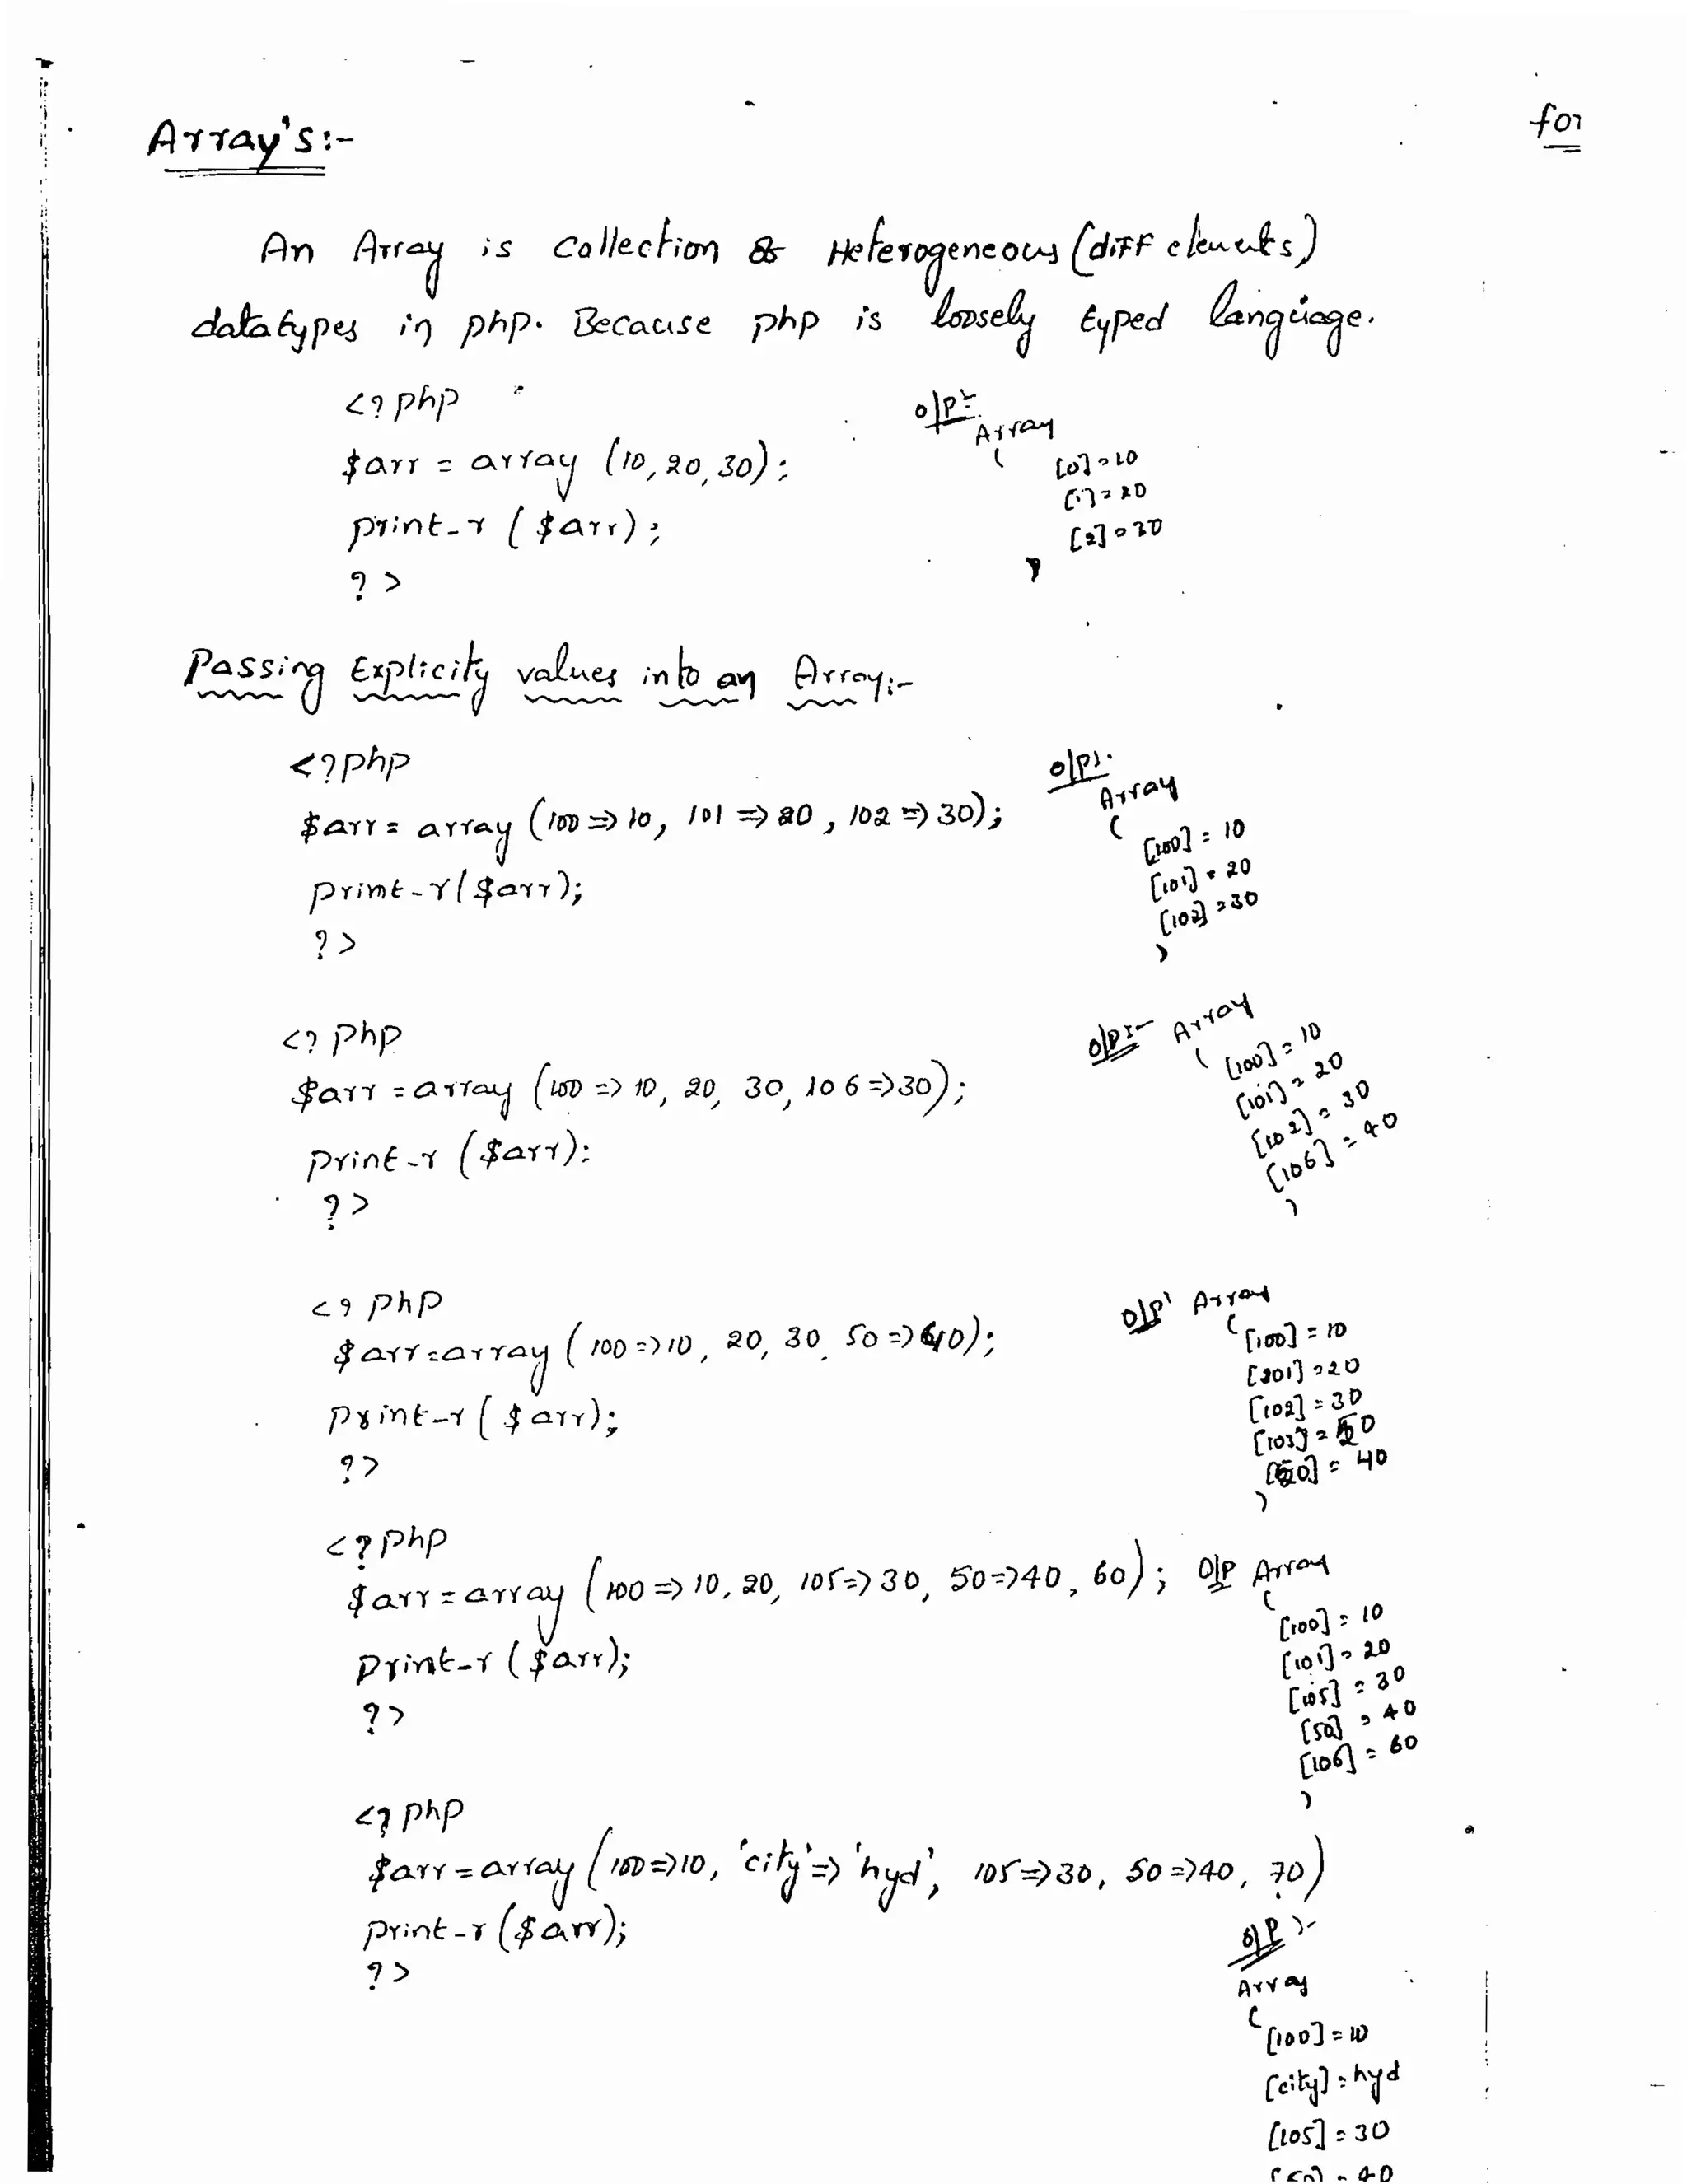 Array's:-
for
An Array is Collection & Heterogeneous (diff elements)
datatypes in php. Because php is loosely typed language.
<? php
$arr = array (10, 20, 30);
print_r ($arr);
? >
o/p:
Array
(
[0] = 10
[1] = 20
[2] = 30
)
Passing Explicity values into an Array:-
<?php
$arr = array (100 => 10, 101 => 20, 102 => 30);
print_r($arr);
? >
o/p:
Array
(
[100] = 10
[101] = 20
[102] = 30
)
<? php
$arr = array (100 => 10, 20, 30, 106 => 30);
print_r ($arr);
? >
o/p:- Array
( [100] = 10
[101] = 20
[102] = 30
[106] = 40
)
<? php
$arr = array (100 => 10, 20, 30, 50 => 40);
print_r ($arr);
? >
o/p: Array
( [100] = 10
[101] = 20
[102] = 30
[103] =
= 40
)
<? php
$arr = array (100 => 10, 20, 105 => 30, 50 => 40, 60);
print_r ($arr);
? >
O/P Array
(
[100] = 10
[101] = 20
[105] = 30
[50] = 40
[106] = 60
)
<? php
$arr = array (100 => 10, 'city' => 'hyd', 105 => 30, 50 => 40, 70)
print_r ($arr);
? >
o/p :-
Array
(
[100] = 10
[city] = hyd
[105] = 30
[50] = 40